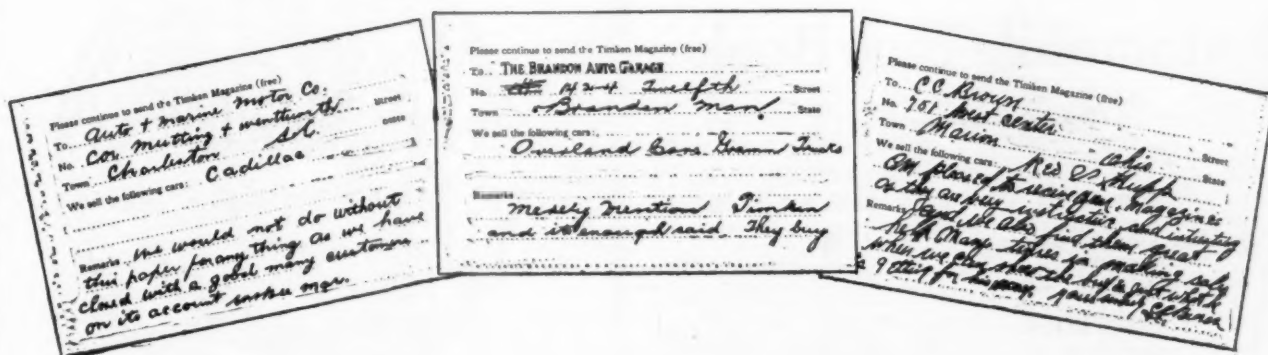 Please continue to send the Timken Magazine (free)
To Auto & Marine Motor Co.
No. Cor. Mutting & Wentworth Street
Town Charleston S.C. State
We sell the following cars: Cadillac
Remarks We would not do without
this paper for any thing as we have
closed with a good many customers
on its account
Please continue to send the Timken Magazine (free)
To THE BRANDON AUTO GARAGE
No. 1424 Twelfth Street
Town Brandon Man. State
We sell the following cars:
Overland Cars Gramm Trucks
Remarks
Merely mention Timken
and its enough said They buy
Please continue to send the Timken Magazine (free)
To C C Brown
No. 701 West Center Street
Town Marion Ohio State
We sell the following cars: Reo & Hupp
am pleased to recive your magazines
as they are very instructive and intresting
Remarks and we also find them great
help many times in making sales
when we can show the buyer just what
getting for his money yours